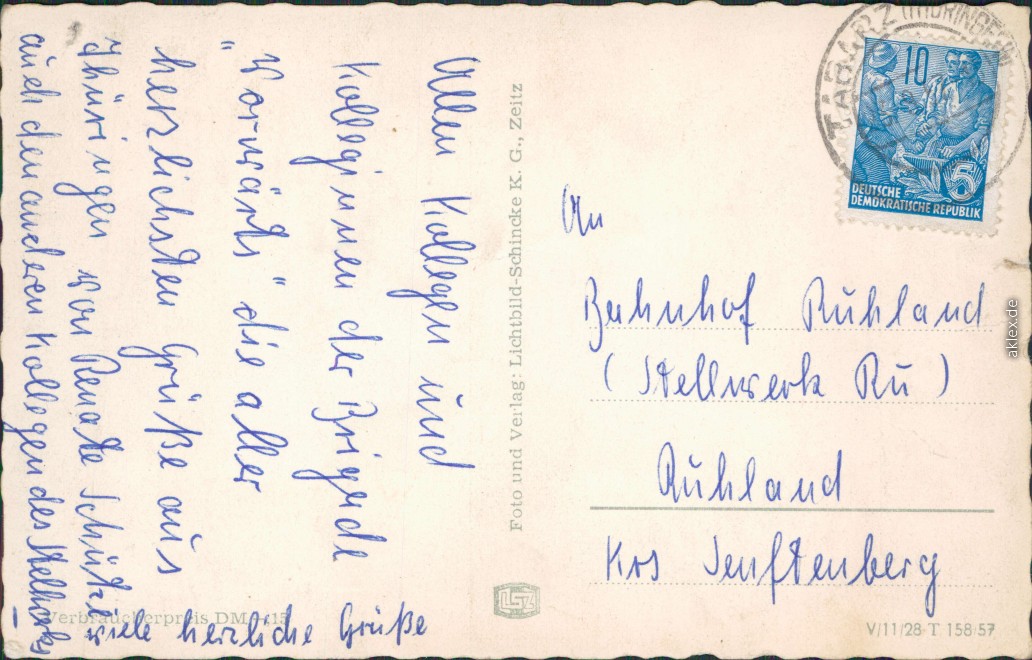 Allen Kollegen und
Kolleginnen der Brigade
"Vorwärts" die aller
herzlichsten Grüße aus
Thüringen von Renate Schütze
auch den anderen Kollegen des Stellwerks
viele herzliche Grüße
Verbraucherpreis DM
Foto und Verlag: Lichtbild-Schincke K. G., Zeitz
LSZ
TABARZ (THÜRINGEN)
10
5
DEUTSCHE
DEMOKRATISCHE REPUBLIK
An
Bahnhof Ruhland
(Stellwerk Ru)
Ruhland
Krs Senftenberg
V/11/28 T 158/57
aklex.de